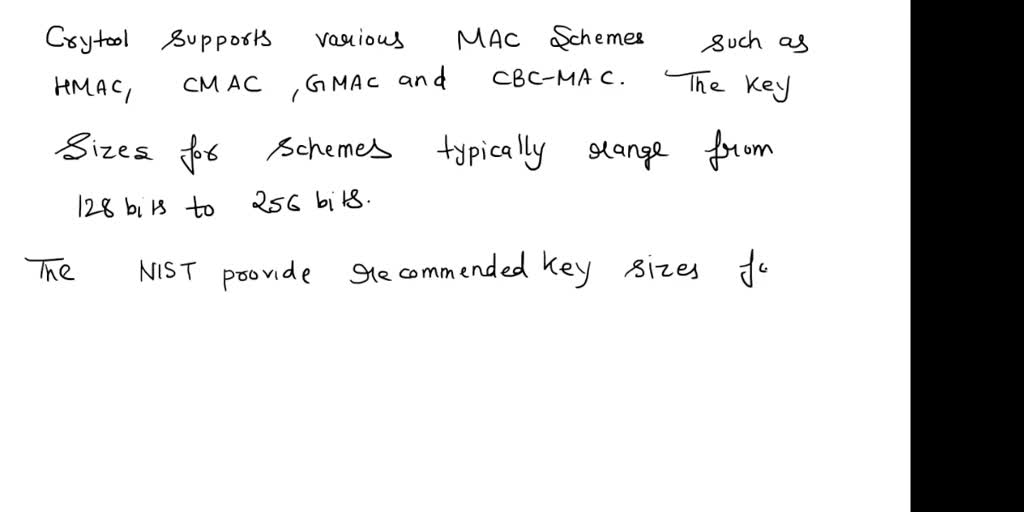 Crytool supports various MAC Schemes such as
HMAC, CMAC, GMAC and CBC-MAC. The Key
Sizes for schemes typically range from
128 bits to 256 bits.
The NIST provide recommended key sizes fo